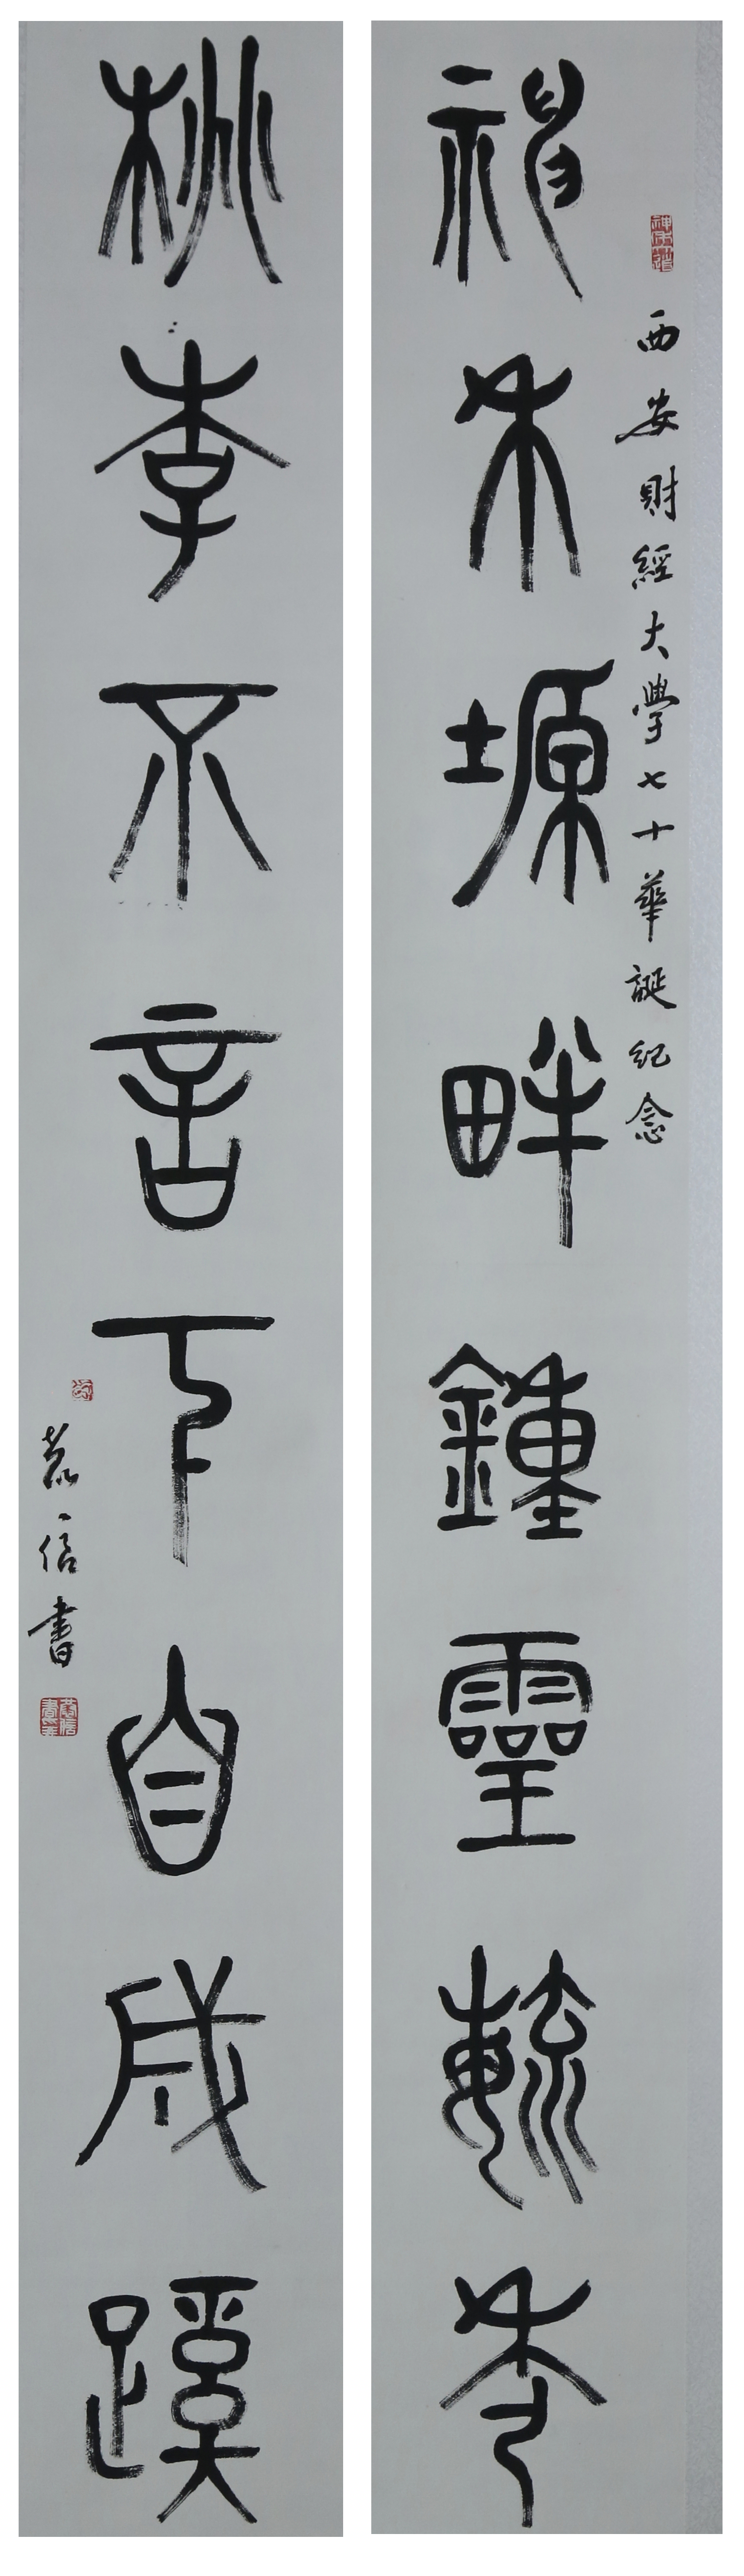 西安財經大學七十華誕紀念
神禾塬畔鍾靈毓秀
桃李不言下自成蹊
信書